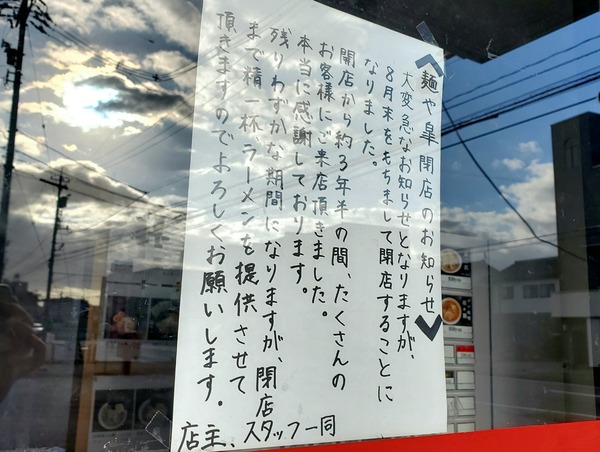 麺や皐 閉店のお知らせ
大変急なお知らせとなりますが、
8月末をもちまして閉店することに
なりました。
開店から約3年半の間、たくさんの
お客様にご来店頂きました。
本当に感謝しております。
残りわずかな期間になりますが、閉店
まで精一杯ラーメンを提供させて
頂きますのでよろしくお願いします。
店主、スタッフ一同